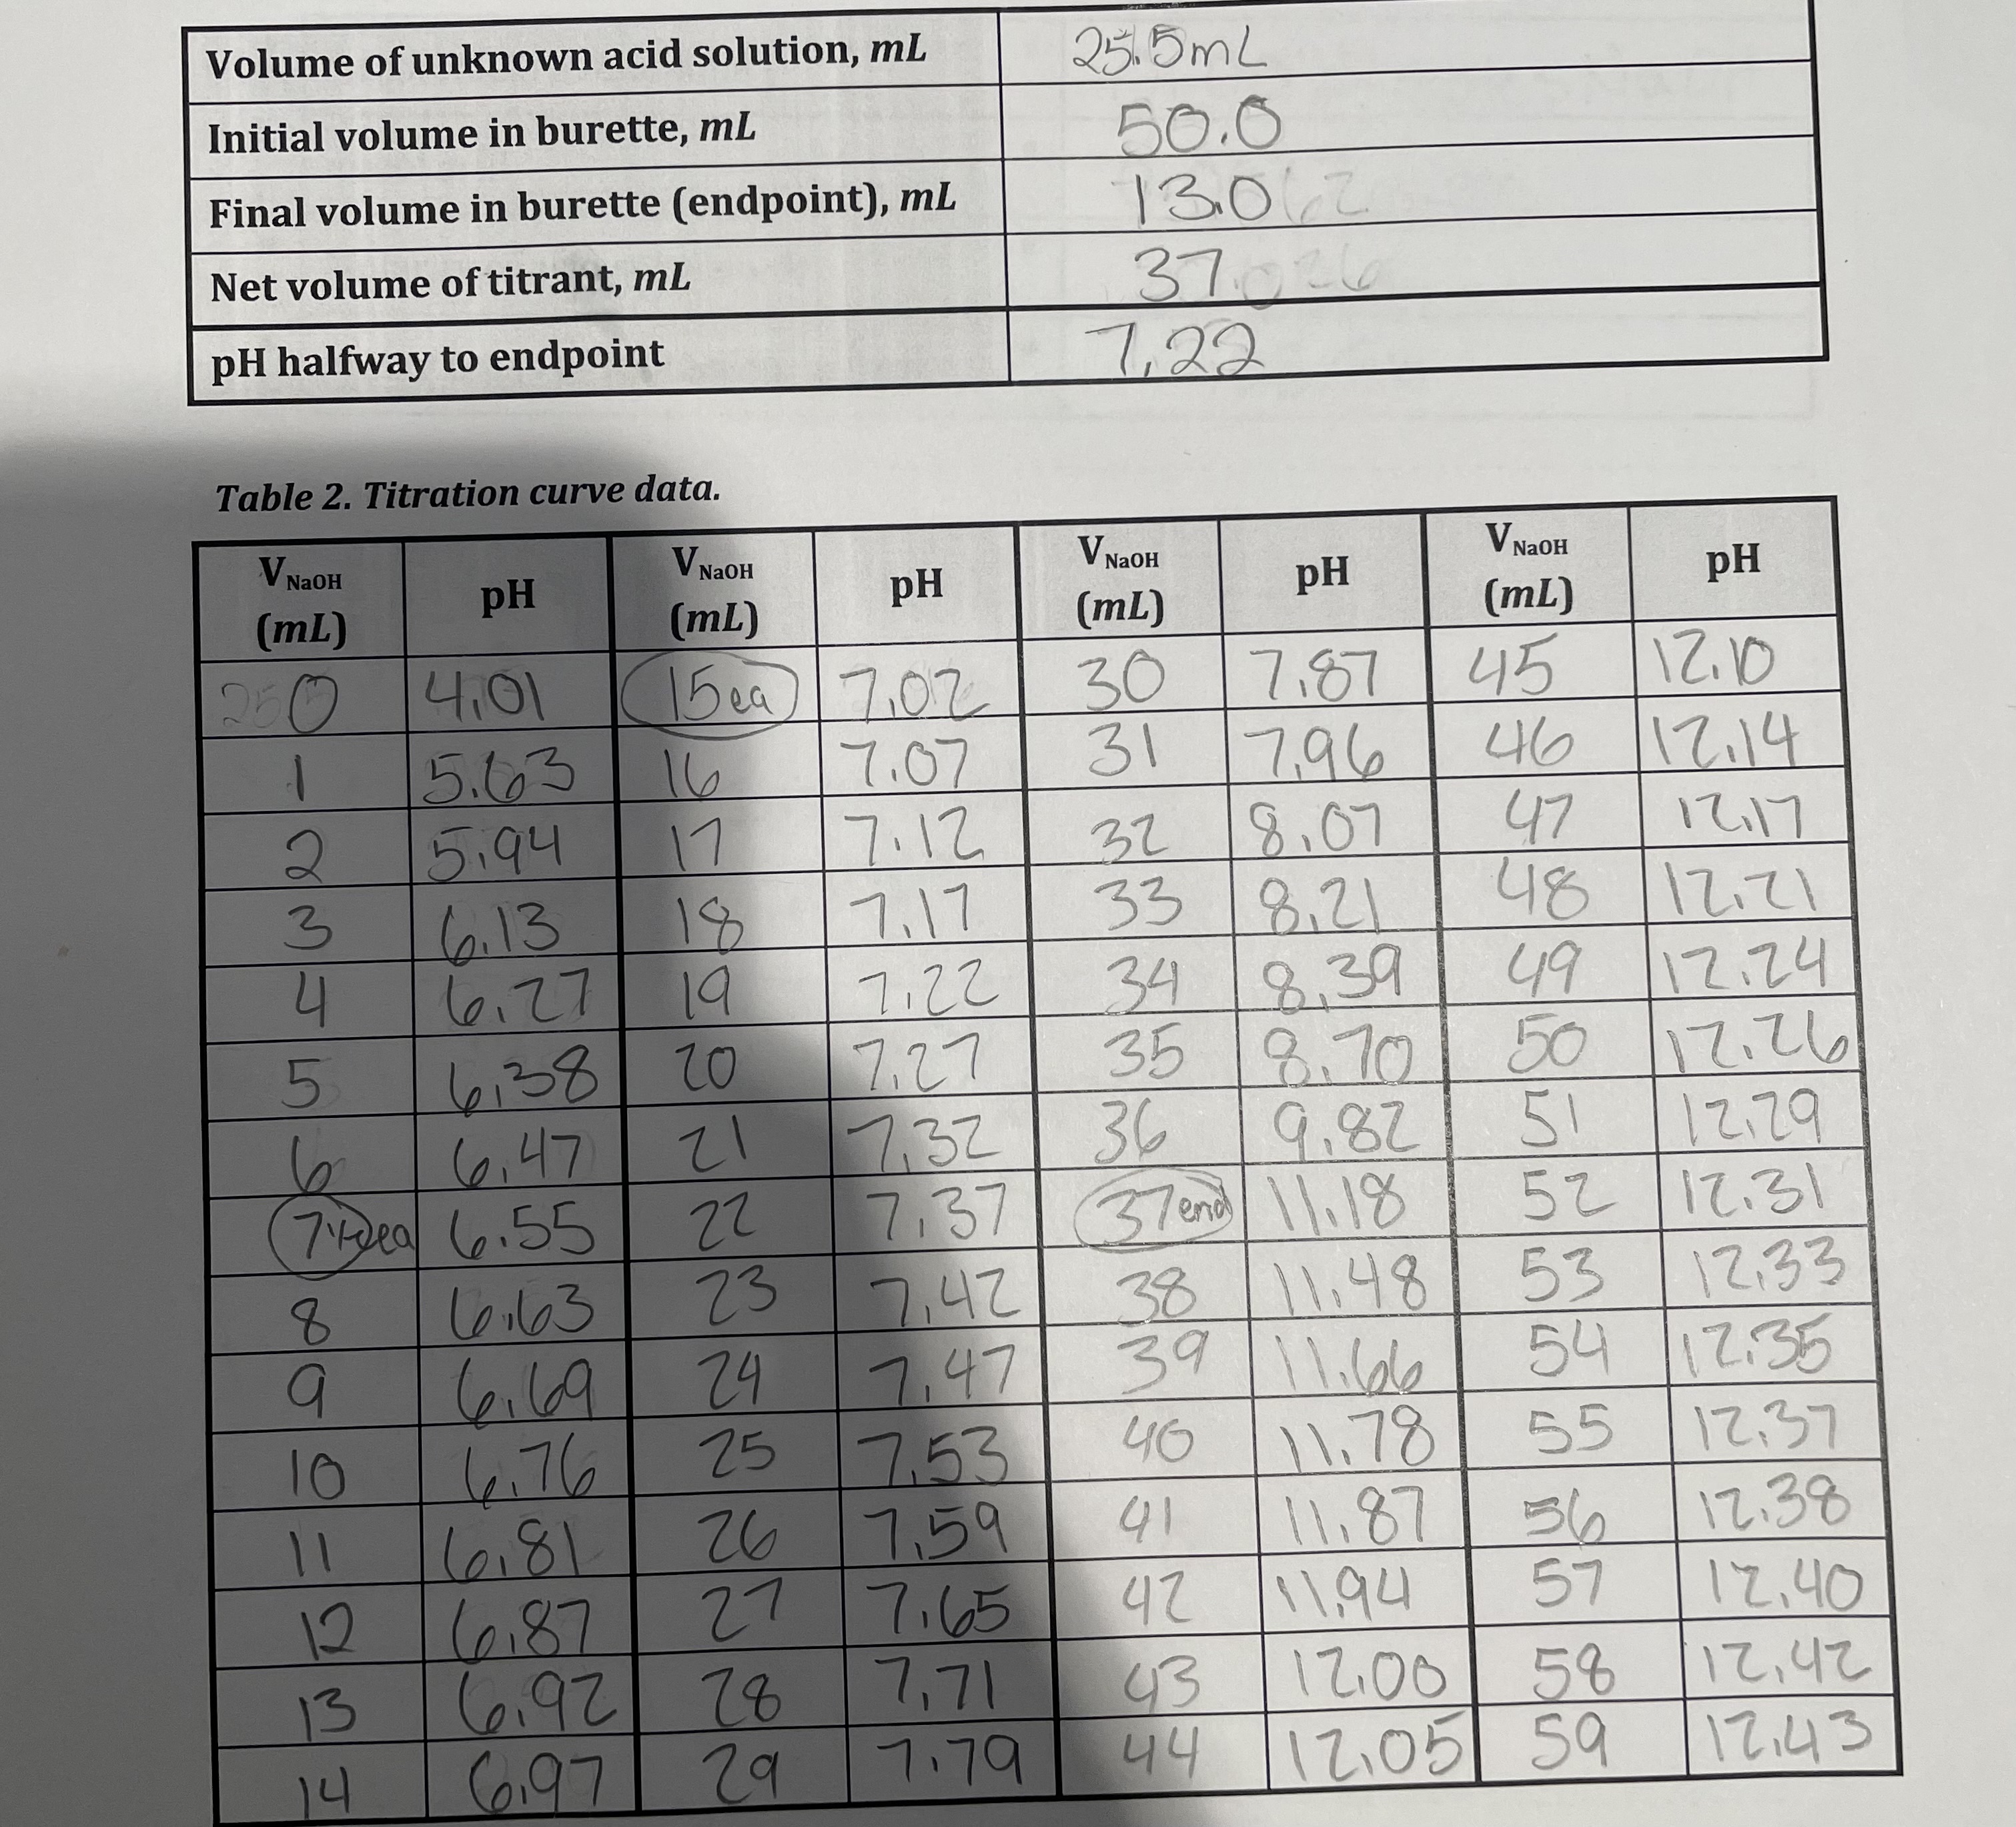 Volume of unknown acid solution, mL 25.5mL
Initial volume in burette, mL 50.0
Final volume in burette (endpoint), mL 13.0
Net volume of titrant, mL 37
pH halfway to endpoint 7.22
Table 2. Titration curve data.
VNaOH (mL) pH VNaOH (mL) pH VNaOH (mL) pH VNaOH (mL) pH
0 4.01 15 ea 7.02 30 7.87 45 12.10
1 5.63 16 7.07 31 7.96 46 12.14
2 5.94 17 7.12 32 8.07 47 12.17
3 6.13 18 7.17 33 8.21 48 12.21
4 6.27 19 7.22 34 8.39 49 12.24
5 6.38 20 7.27 35 8.70 50 12.26
6 6.47 21 7.32 36 9.82 51 12.29
7 6.55 22 7.37 37 end 11.18 52 12.31
8 6.63 23 7.42 38 11.48 53 12.33
9 6.69 24 7.47 39 11.66 54 12.35
10 6.76 25 7.53 40 11.78 55 12.37
11 6.81 26 7.59 41 11.87 56 12.38
12 6.87 27 7.65 42 11.94 57 12.40
13 6.92 28 7.71 43 12.00 58 12.42
14 6.97 29 7.79 44 12.05 59 12.43